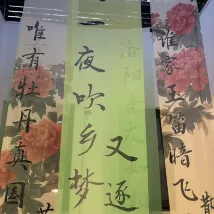 谁家玉笛暗飞
散
一夜吹乡梦
又逐
洛阳
唯有牡丹真国